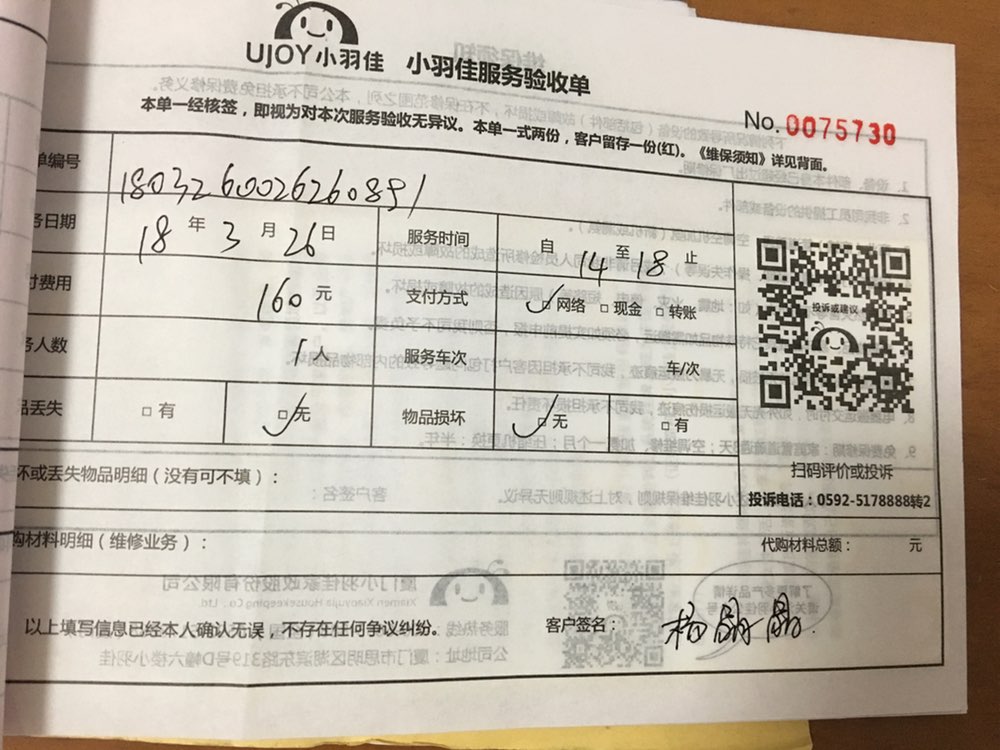 UJOY小羽佳 小羽佳服务验收单
No. 0075730
本单一经核签，即视为对本次服务验收无异议。本单一式两份，客户留存一份(红)。《维保须知》详见背面。
单编号 1803260026260891
务日期 18 年 3 月 26 日 服务时间 自 14 至 18 止
付费用 160 元 支付方式 网络 □ 现金 □ 转账
务人数 1 人 服务车次 车/次
品丢失 □ 有 □ 无 物品损坏 □ 无 □ 有
投诉或建议
扫码评价或投诉
投诉电话：0592-5178888转2
坏或丢失物品明细（没有可不填）：
购材料明细（维修业务）： 代购材料总额： 元
以上填写信息已经本人确认无误，不存在任何争议纠纷。 客户签名： 杨晶晶